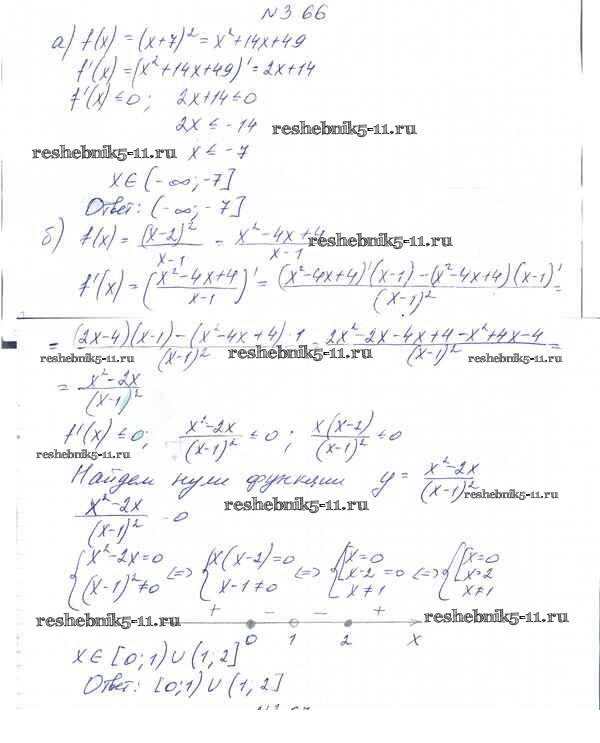 №3 66
а) f(x) = (x+7)² = x²+14x+49
f'(x) = (x²+14x+49)' = 2x+14
f'(x) ≤ 0; 2x+14 ≤ 0
2x ≤ -14 reshebnik5-11.ru
reshebnik5-11.ru x ≤ -7
x ∈ (-∞; -7]
Ответ: (-∞; -7]
б) f(x) = (x-2)²/(x-1) = (x²-4x+4)/(x-1) reshebnik5-11.ru
f'(x) = ((x²-4x+4)/(x-1))' = ((x²-4x+4)'(x-1)-(x²-4x+4)(x-1)')/(x-1)² =
= ((2x-4)(x-1)-(x²-4x+4)·1)/(x-1)² = (2x²-2x-4x+4-x²+4x-4)/(x-1)² =
reshebnik5-11.ru reshebnik5-11.ru reshebnik5-11.ru
= (x²-2x)/(x-1)²
f'(x) ≤ 0; (x²-2x)/(x-1)² ≤ 0; x(x-2)/(x-1)² ≤ 0
reshebnik5-11.ru
Найдем нули функции y = (x²-2x)/(x-1)² reshebnik5-11.ru
(x²-2x)/(x-1)² = 0 reshebnik5-11.ru
{x²-2x=0 <=> {x(x-2)=0 <=> {[x=0 <=> {[x=0
(x-1)²≠0 x-1≠0 x-2=0 x=2
x≠1 x≠1
+ - - +
reshebnik5-11.ru reshebnik5-11.ru
0 1 2 x
x ∈ [0;1) ∪ (1;2]
Ответ: [0;1) ∪ (1;2]